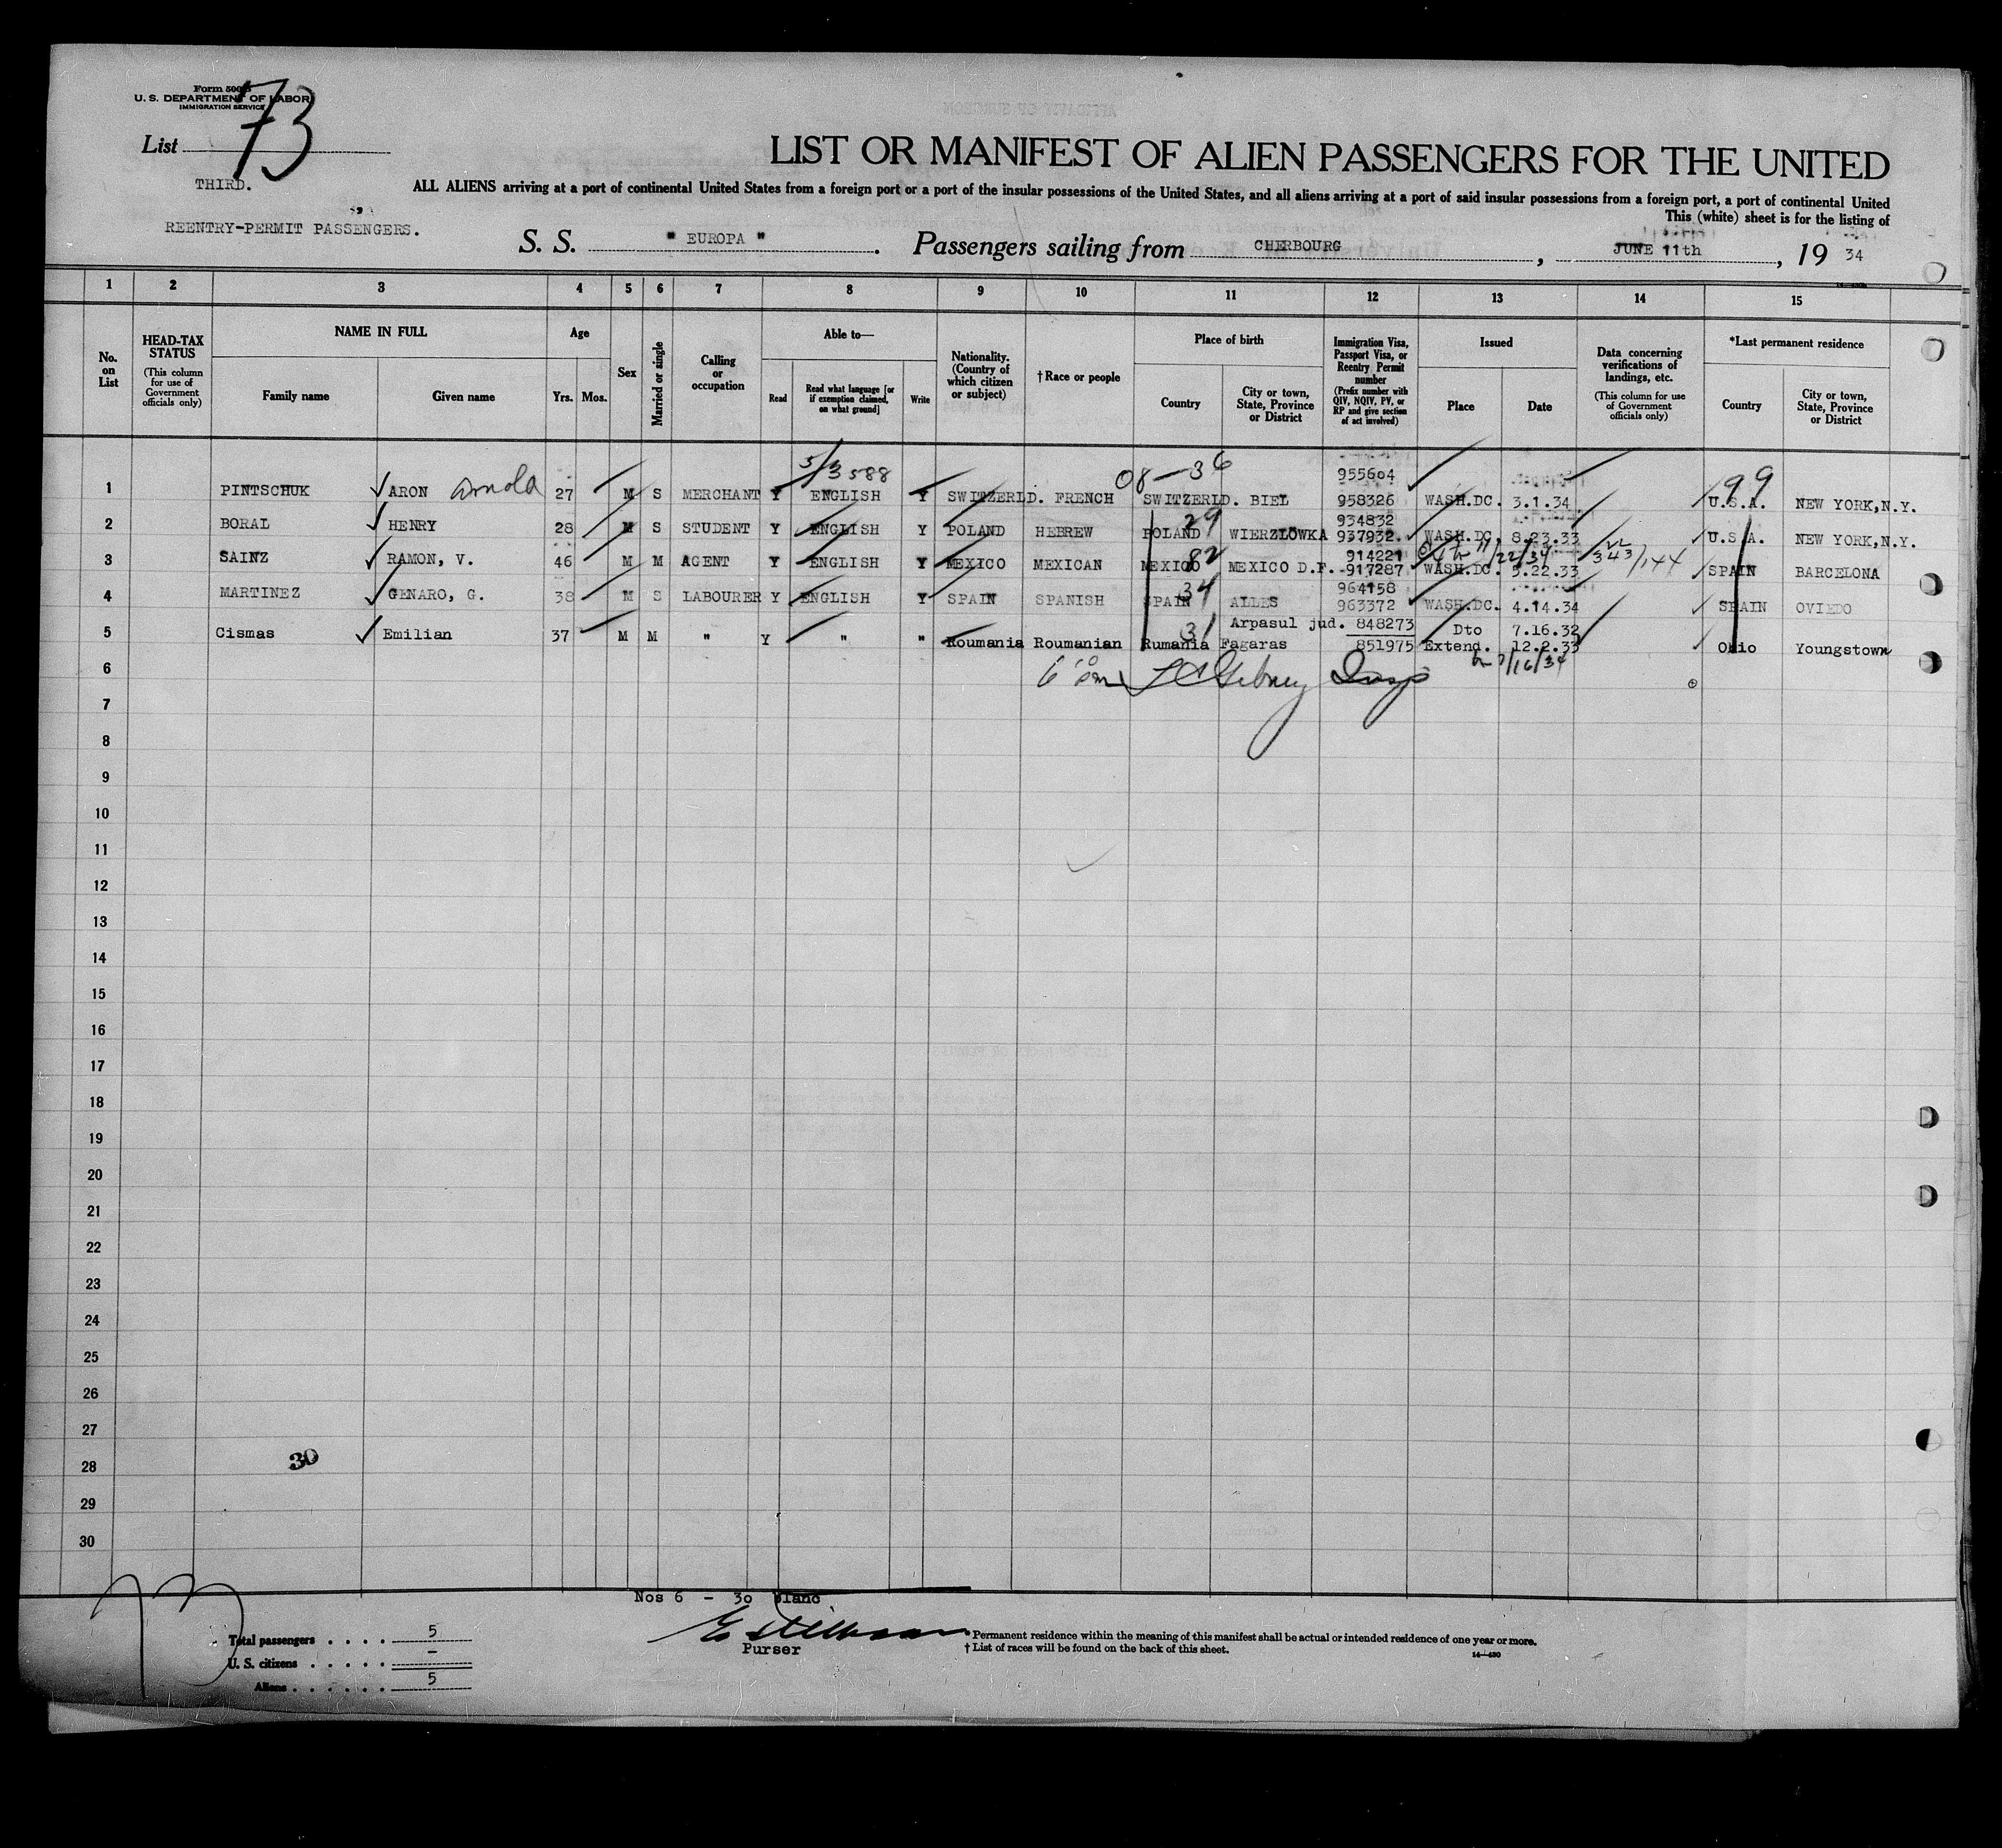 Form 500
U. S. DEPARTMENT OF LABOR
IMMIGRATION SERVICE
List 73
THIRD.
REENTRY-PERMIT PASSENGERS.
LIST OR MANIFEST OF ALIEN PASSENGERS FOR THE UNITED
ALL ALIENS arriving at a port of continental United States from a foreign port or a port of the insular possessions of the United States, and all aliens arriving at a port of said insular possessions from a foreign port, a port of continental United
This (white) sheet is for the listing of
S. S. " EUROPA ". Passengers sailing from CHERBOURG, JUNE 11th, 19 34
1 2 3 4 5 6 7 8 9 10 11 12 13 14 15
No. on List
HEAD-TAX STATUS
(This column for use of Government officials only)
NAME IN FULL
Family name
Given name
Age
Yrs. Mos.
Sex
Married or single
Calling or occupation
Able to—
Read
Read what language [or if exemption claimed, on what ground]
Write
Nationality. (Country of which citizen or subject)
†Race or people
Place of birth
Country
City or town, State, Province or District
Immigration Visa, Passport Visa, or Reentry Permit number
(Prefix number with QIV, NQIV, PV, or RP and give section of act involved)
Issued
Place
Date
Data concerning verifications of landings, etc.
(This column for use of Government officials only)
*Last permanent residence
Country
City or town, State, Province or District
5/3588 08-36 955604 199
1 PINTSCHUK ARON Arnold 27 M S MERCHANT Y ENGLISH Y SWITZERLD. FRENCH SWITZERLD. BIEL 958326 WASH.DC. 3.1.34 U.S.A. NEW YORK,N.Y.
29 934832
2 BORAL HENRY 28 M S STUDENT Y ENGLISH Y POLAND HEBREW POLAND WIERZLOWKA 937932 WASH.DC. 8.23.33 U.S.A. NEW YORK,N.Y.
82 914221 11/22/34 343/144
3 SAINZ RAMON, V. 46 M M AGENT Y ENGLISH Y MEXICO MEXICAN MEXICO MEXICO D.F. 917287 WASH.DC. 5.22.33 SPAIN BARCELONA
34 964158
4 MARTINEZ GENARO, G. 38 M S LABOURER Y ENGLISH Y SPAIN SPANISH SPAIN ALLES 963372 WASH.DC. 4.14.34 SPAIN OVIEDO
31 Arpasul jud. 848273 Dto 7.16.32
5 Cismas Emilian 37 M M " Y " " Roumania Roumanian Rumania Fagaras 851975 Extend. 12.2.33 Ohio Youngstown
7/16/34
6 Insp
7
8
9
10
11
12
13
14
15
16
17
18
19
20
21
22
23
24
25
26
27
28
29
30
30
Nos 6 - 30 blanc
Purser
Total passengers . . . . 5
U. S. citizens . . . . . -
Aliens . . . . . . 5
* Permanent residence within the meaning of this manifest shall be actual or intended residence of one year or more.
† List of races will be found on the back of this sheet.
14—430